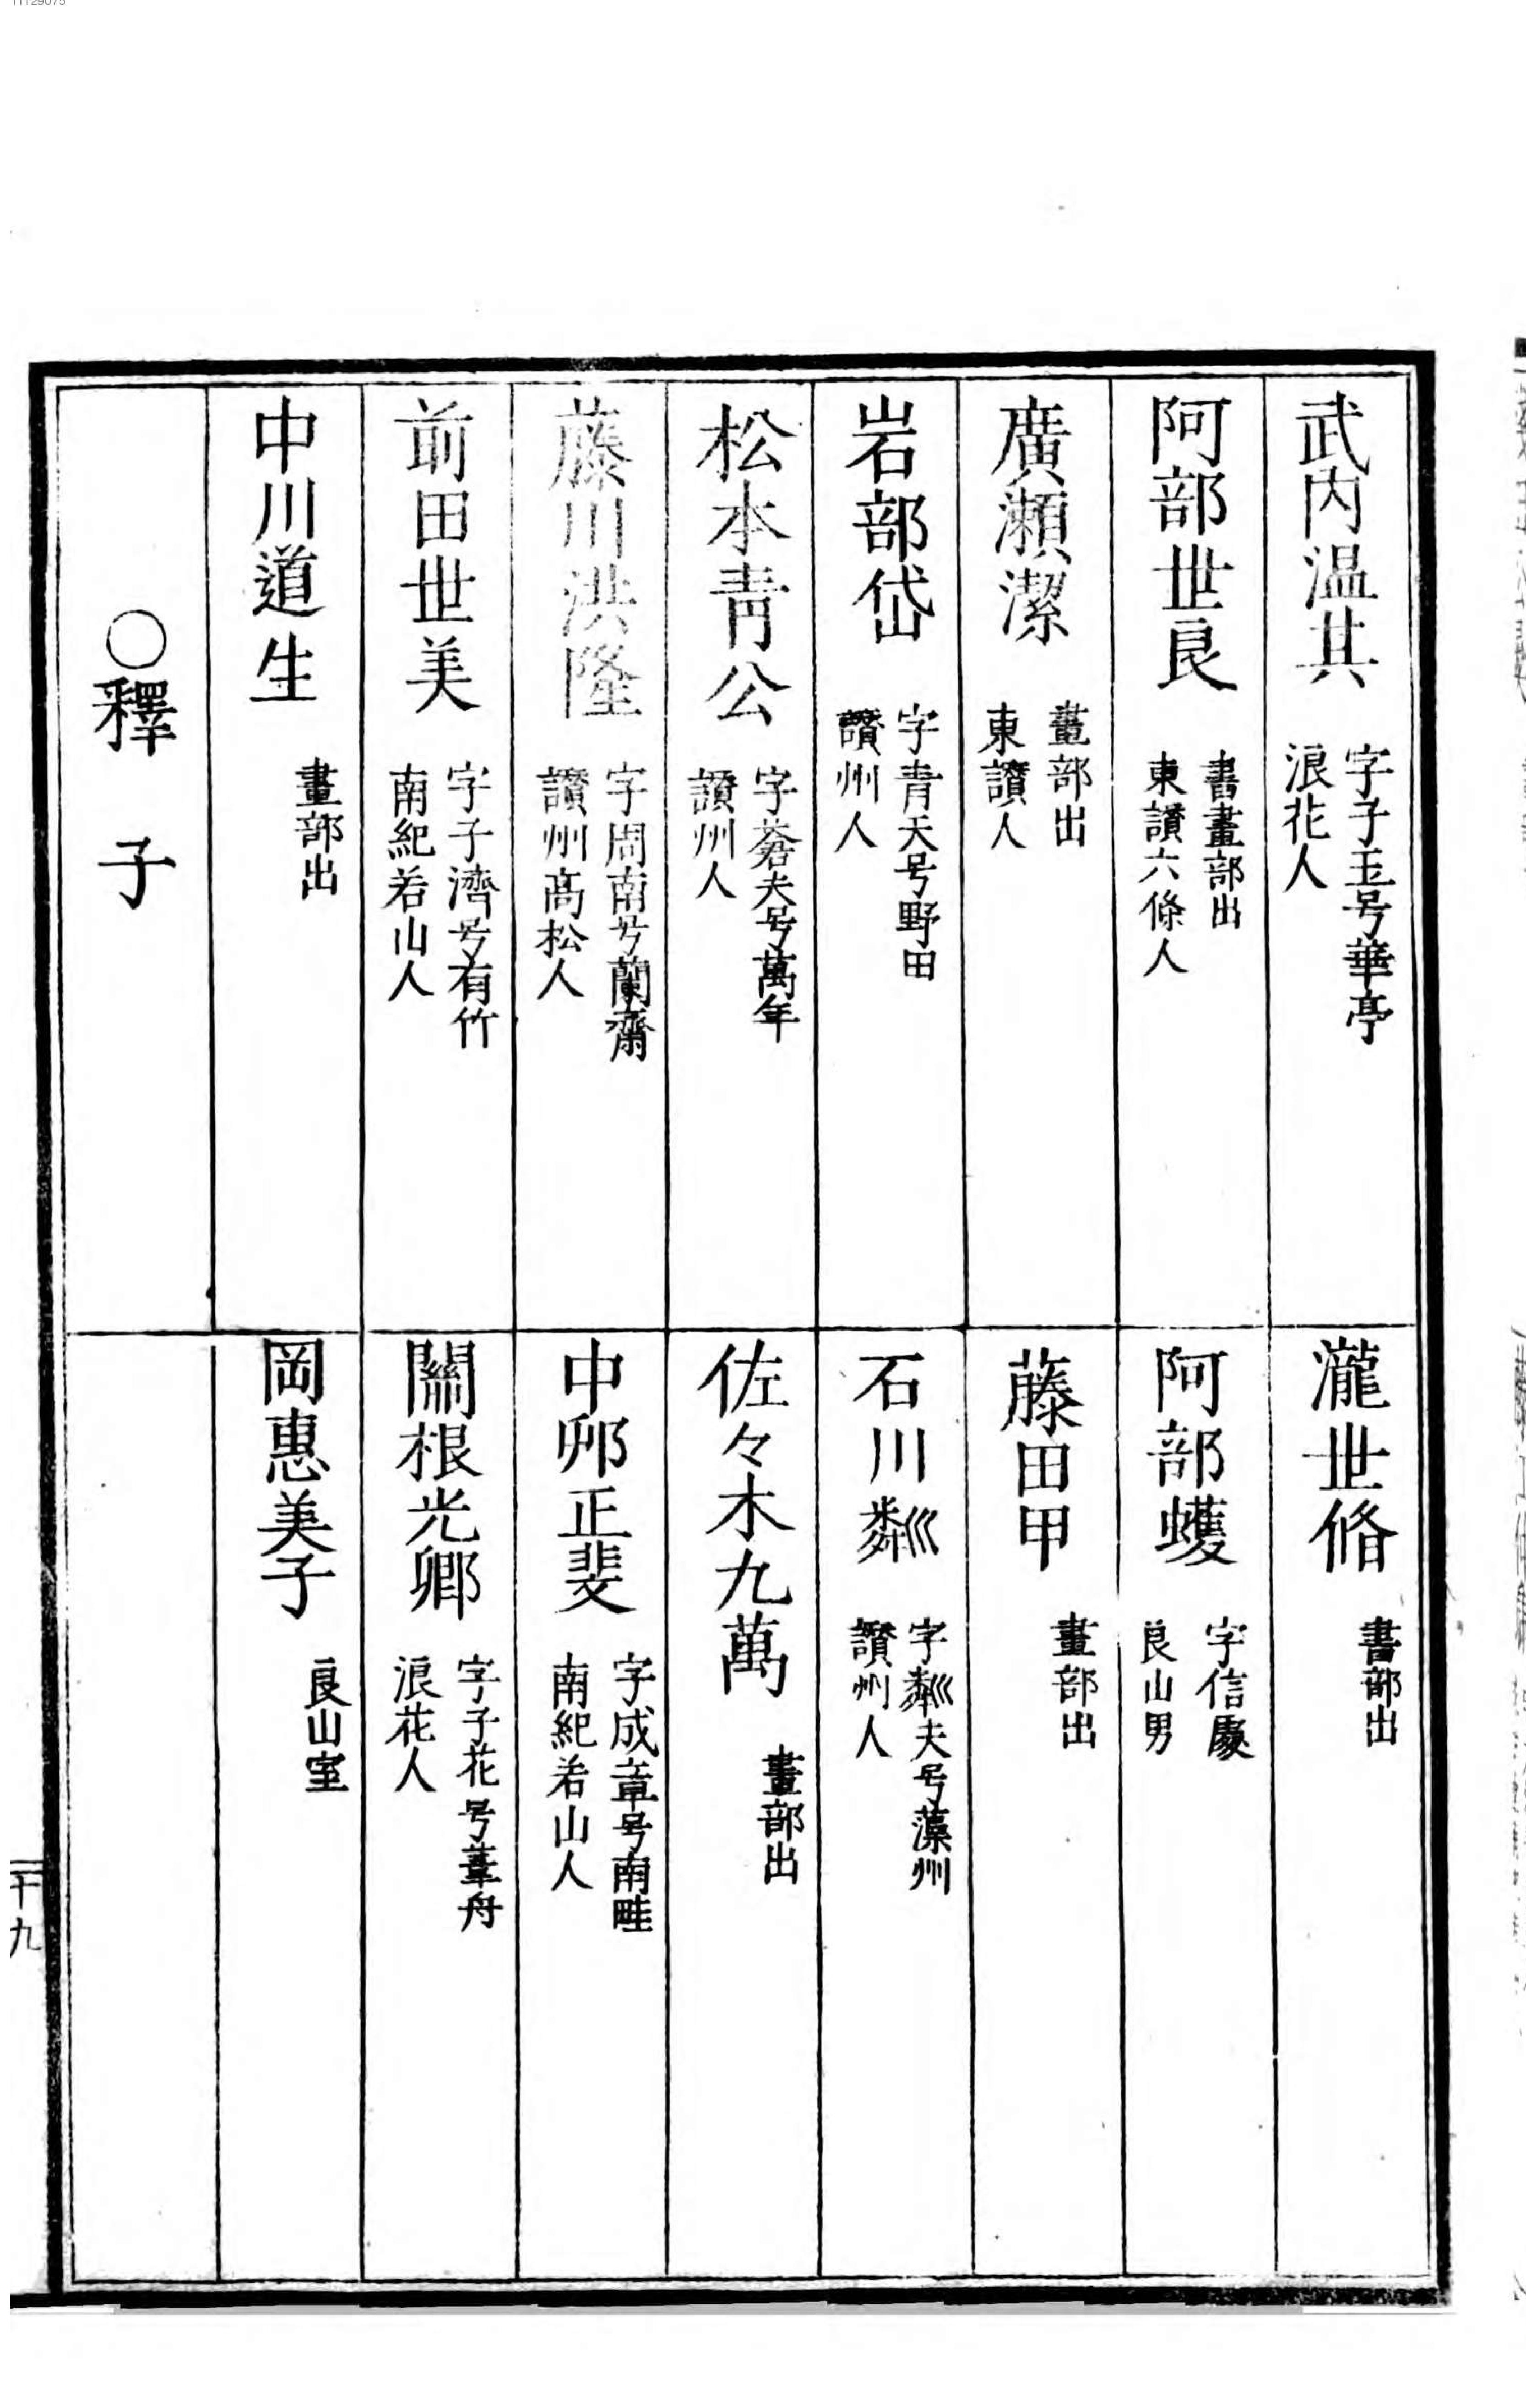 武内温其 字子玉号華亭
浪花人
瀧世脩 書部出
阿部世良 書畫部出
東讃六條人
阿部蠖 字信
良山男
廣瀬潔 畫部出
東讃人
藤田甲 畫部出
岩部岱 字青天号野田
讃州人
石川粼 字粼夫号藻州
讃州人
松本青公 字蒼夫号萬年
讃州人
佐々木九萬 畫部出
藤川洪隆 字周南号蘭齋
讃州髙松人
中邜正斐 字成章号南畦
南紀若山人
前田世美 字子濟号有竹
南紀若山人
關根光卿 字子花号葦舟
浪花人
中川道生 畫部出
岡惠美子 良山室
〇釋子
二十九